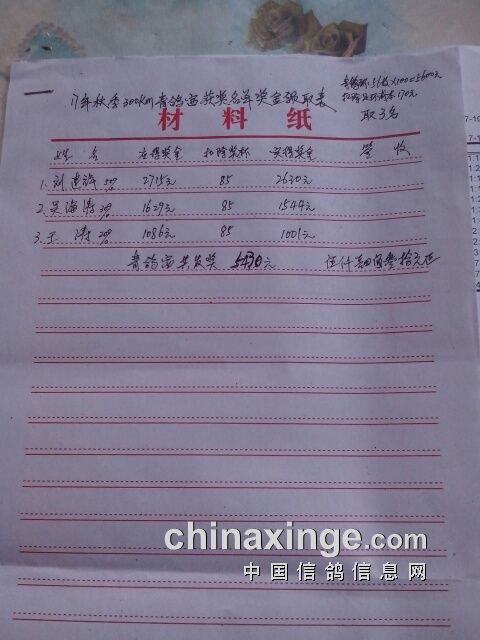 青鸽环:56枚×100=5600元
扣除足环成本170元
取3名
17年秋季300km青鸽富获奖名单奖金领取表
材料纸
姓名 应得奖金 扣除奖杯 实得奖金 签收
1. 刘 50% 2715元 85 2630元
2. 吴海涛 30% 1629元 85 1544元
3. 王涛 20% 1086元 85 1001元
青鸽富共发奖 5430元 伍仟肆佰叁拾元正
7-10
7-1
chinaxinge.com
中国信鸽信息网